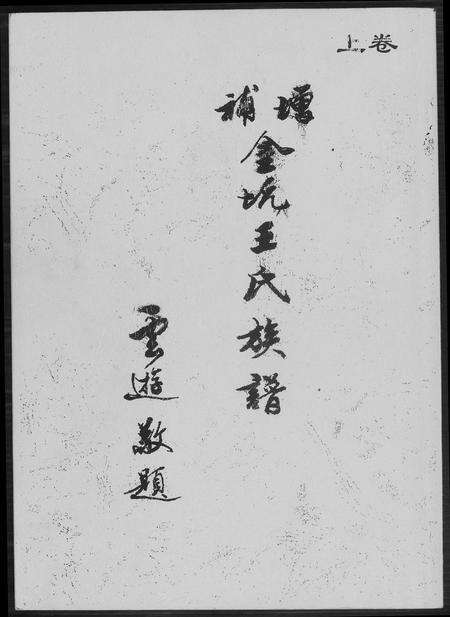 上卷
增補
金坑王氏族譜
雲遊敬題